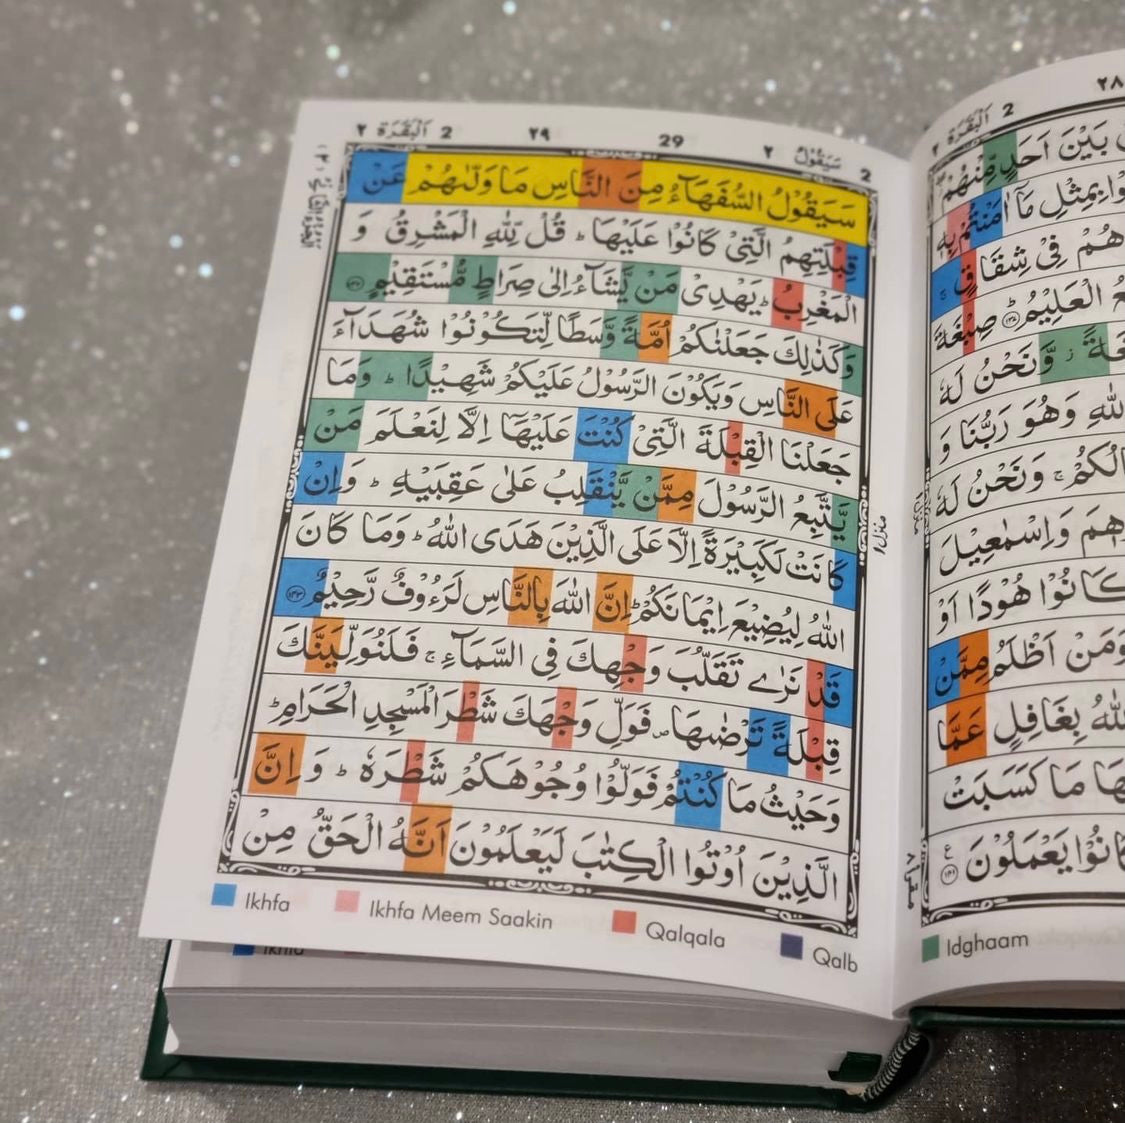 ٢٨ 2 اَلْبَقَرَة ٢
بَيْنَ اَحَدٍ مِّنْهُمْ
بِمِثْلِ مَآ اٰمَنْتُمْ بِهٖ
هُمْ فِىْ شِقَاقٍ ۚ
الْعَلِيْمُ ؕ ﴿١٣٧﴾ صِبْغَةَ
وَّنَحْنُ لَهٗ
وَهُوَ رَبُّنَا وَ
وَنَحْنُ لَهٗ
وَاِسْمٰعِيْلَ
كَانُوْا هُوْدًا اَوْ
وَمَنْ اَظْلَمُ مِمَّنْ
بِغَافِلٍ عَمَّا
مَا كَسَبَتْ
يَعْمَلُوْنَ ﴿١٤١﴾
Idghaam
2 سَيَقُوْلُ ٢ 29 ٢٩ 2 اَلْبَقَرَة ٢
سَيَقُوْلُ السُّفَهَآءُ مِنَ النَّاسِ مَا وَلّٰىهُمْ عَنْ
قِبْلَتِهِمُ الَّتِىْ كَانُوْا عَلَيْهَا ؕ قُلْ لِّلّٰهِ الْمَشْرِقُ وَ
الْمَغْرِبُ ؕ يَهْدِىْ مَنْ يَّشَآءُ اِلٰى صِرَاطٍ مُّسْتَقِيْمٍ ﴿١٤٢﴾
وَكَذٰلِكَ جَعَلْنٰكُمْ اُمَّةً وَّسَطًا لِّتَكُوْنُوْا شُهَدَآءَ
عَلَى النَّاسِ وَيَكُوْنَ الرَّسُوْلُ عَلَيْكُمْ شَهِيْدًا ؕ وَمَا
جَعَلْنَا الْقِبْلَةَ الَّتِىْ كُنْتَ عَلَيْهَآ اِلَّا لِنَعْلَمَ مَنْ
يَّتَّبِعُ الرَّسُوْلَ مِمَّنْ يَّنْقَلِبُ عَلٰى عَقِبَيْهِ ؕ وَاِنْ
كَانَتْ لَكَبِيْرَةً اِلَّا عَلَى الَّذِيْنَ هَدَى اللّٰهُ ؕ وَمَا كَانَ
اللّٰهُ لِيُضِيْعَ اِيْمَانَكُمْ ؕ اِنَّ اللّٰهَ بِالنَّاسِ لَرَءُوْفٌ رَّحِيْمٌ ﴿١٤٣﴾
قَدْ نَرٰى تَقَلُّبَ وَجْهِكَ فِى السَّمَآءِ ۚ فَلَنُوَلِّيَنَّكَ
قِبْلَةً تَرْضٰىهَا ۪ فَوَلِّ وَجْهَكَ شَطْرَ الْمَسْجِدِ الْحَرَامِ ؕ
وَحَيْثُ مَا كُنْتُمْ فَوَلُّوْا وُجُوْهَكُمْ شَطْرَهٗ ؕ وَ اِنَّ
الَّذِيْنَ اُوْتُوا الْكِتٰبَ لَيَعْلَمُوْنَ اَنَّهُ الْحَقُّ مِنْ
منزل ١
Ikhfa Ikhfa Meem Saakin Qalqala Qalb
Ikhfa